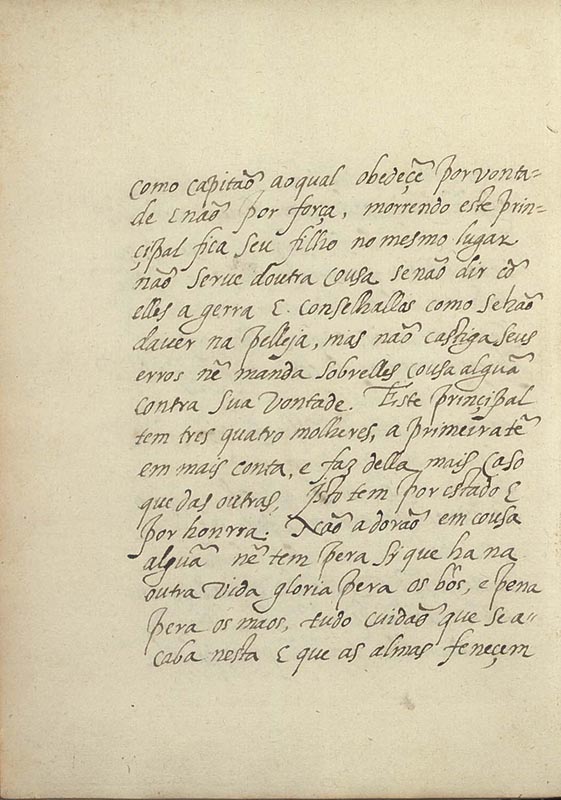 como capitaõ aoqual obedeçẽ por vonta=
de E naõ por força, morrendo este prin=
çipal fica seu filho no mesmo lugar
naõ serue doutra cousa senaõ dir cõ
elles a gerra E conselhallos como sehaõ
dauer na pelleja, mas naõ castiga seus
erros nẽ manda sobrelles cousa algũa
contra sua vontade. Este prinçipal
tem tres quatro molheres, a primeira tẽ
em mais conta, e faz della mais caso
que das outras, Isto tem por estado E
por honrra. Naõ adoraõ em cousa
algũa nẽ tem pera si que ha na
outra vida gloria pera os bõs, e pena
pera os maos, tudo cuidaõ que se a=
caba nesta E que as almas feneçem